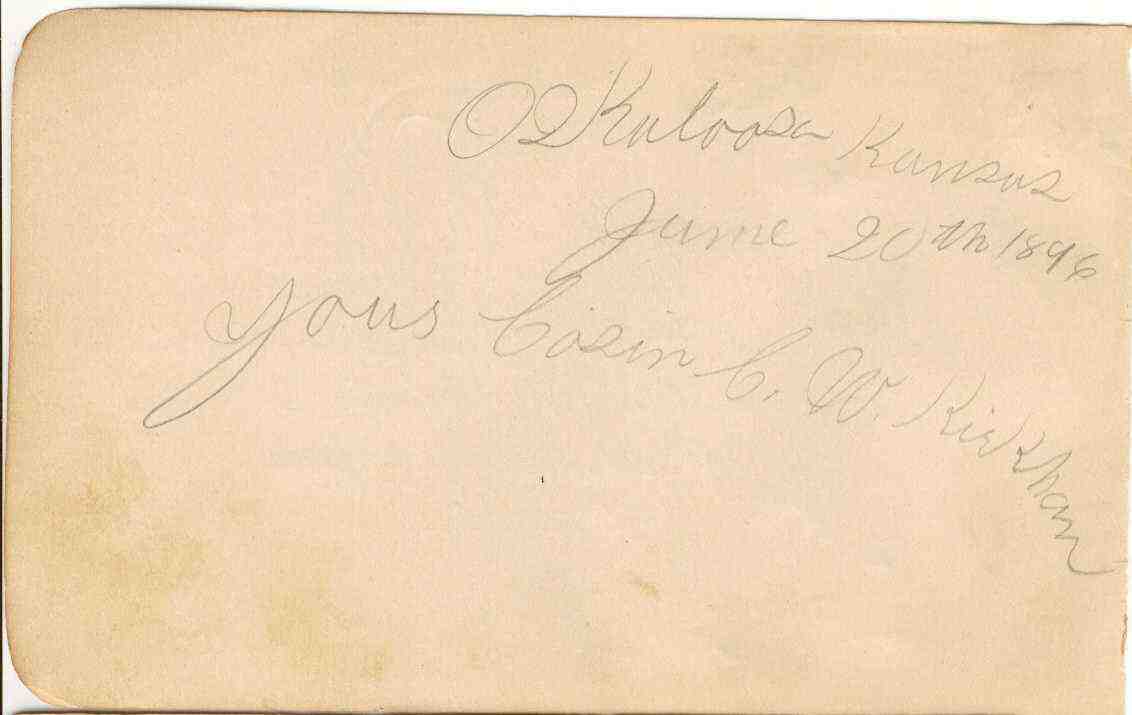 OsKaloosa Kansas
June 20th 1896
yous Cosin C. W. Kirkham